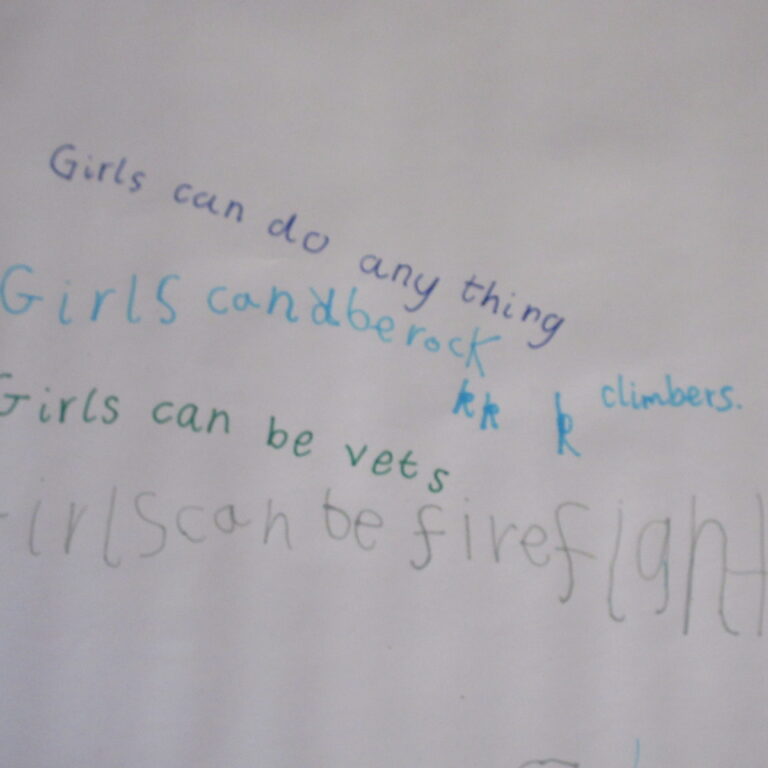 Girls can do any thing
Girls can be rock
climbers.
kk k
Girls can be vets
Girls can be firefight